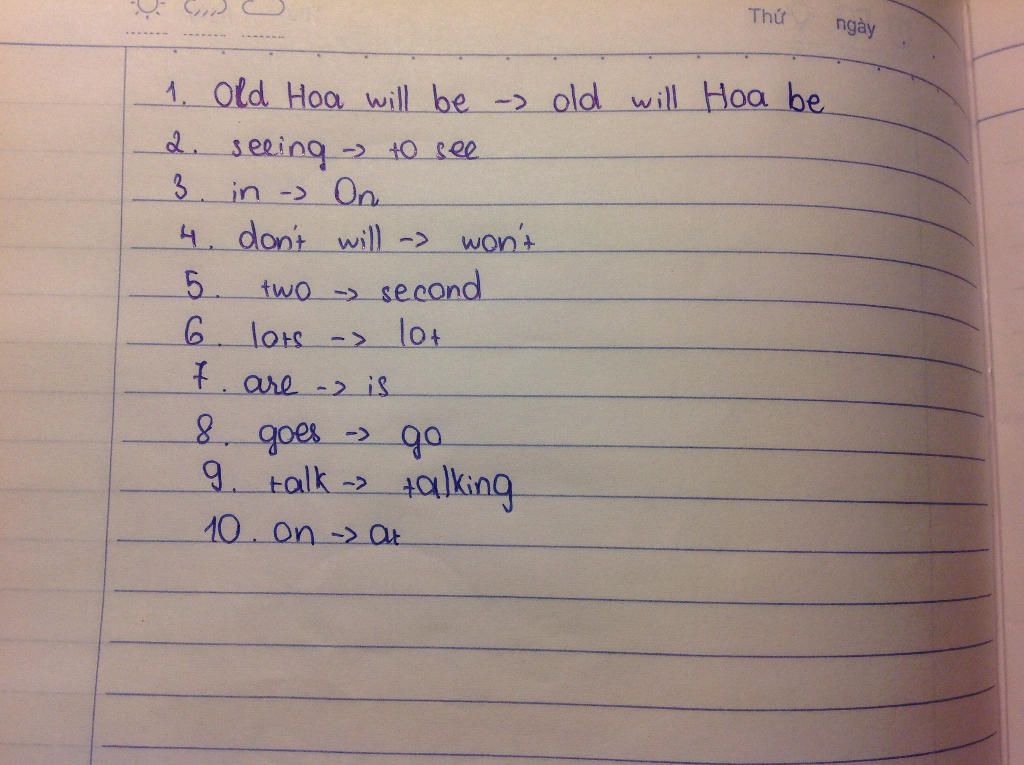 Thứ ngày
1. Old Hoa will be -> old will Hoa be
2. seeing -> to see
3. in -> On
4. don't will -> won't
5. two -> second
6. lots -> lot
7. are -> is
8. goes -> go
9. talk -> talking
10. on -> at